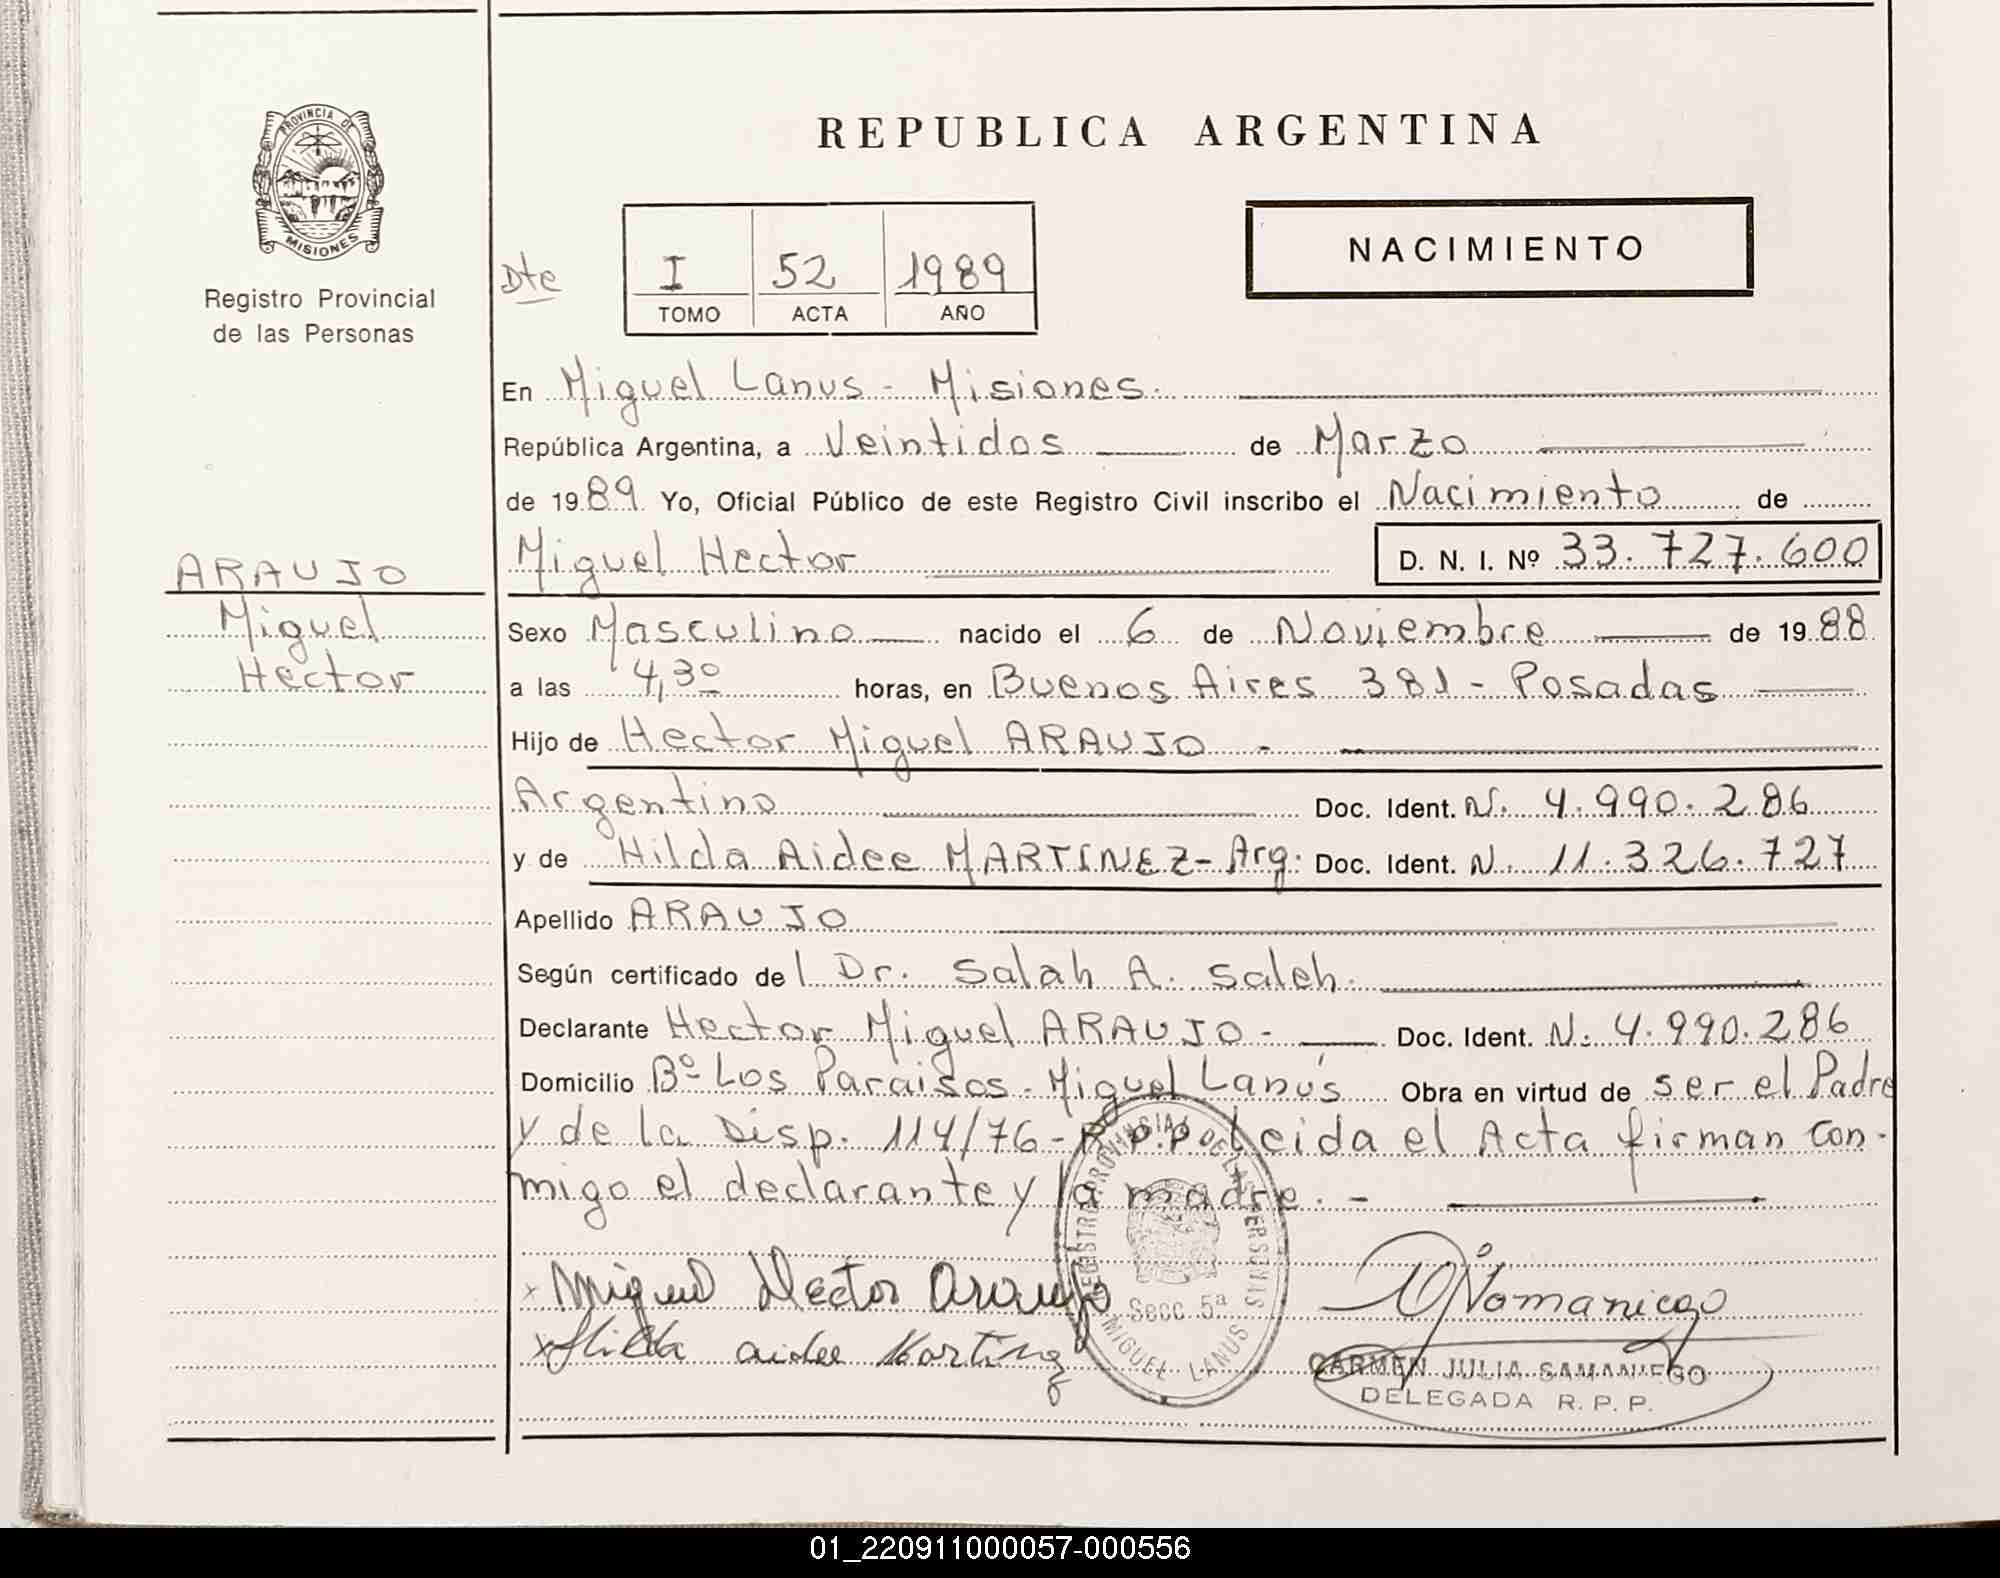 PROVINCIA DE
MISIONES
Registro Provincial
de las Personas
REPUBLICA ARGENTINA
NACIMIENTO
Dte
I 52 1989
TOMO ACTA AÑO
En Miguel Lanus - Misiones.
República Argentina, a Veintidos de Marzo
de 1989 Yo, Oficial Público de este Registro Civil inscribo el Nacimiento de
Miguel Hector D. N. I. Nº 33.727.600
ARAUJO
Miguel
Hector
Sexo Masculino nacido el 6 de Noviembre de 1988
a las 4,30 horas, en Buenos Aires 381 - Posadas
Hijo de Hector Miguel ARAUJO -
Argentino Doc. Ident. N. 4.990.286
y de Hilda Aidee MARTINEZ - Arg. Doc. Ident. N. 11.326.727
Apellido ARAUJO
Según certificado de l Dr. Salah A. Saleh.
Declarante Hector Miguel ARAUJO - Doc. Ident. N. 4.990.286
Domicilio Bº Los Paraisos - Miguel Lanús Obra en virtud de ser el Padre
y de la Disp. 114/76 - R.P.P Leida el Acta firman con-
migo el declarante y la madre. -
x Miguel Hector Araujo
x Hilda aidee Martinez
REGISTRO PROVINCIAL DE LAS PERSONAS
Secc. 5ª
MIGUEL LANUS
CARMEN JULIA SAMANIEGO
DELEGADA R. P. P.
01_220911000057-000556